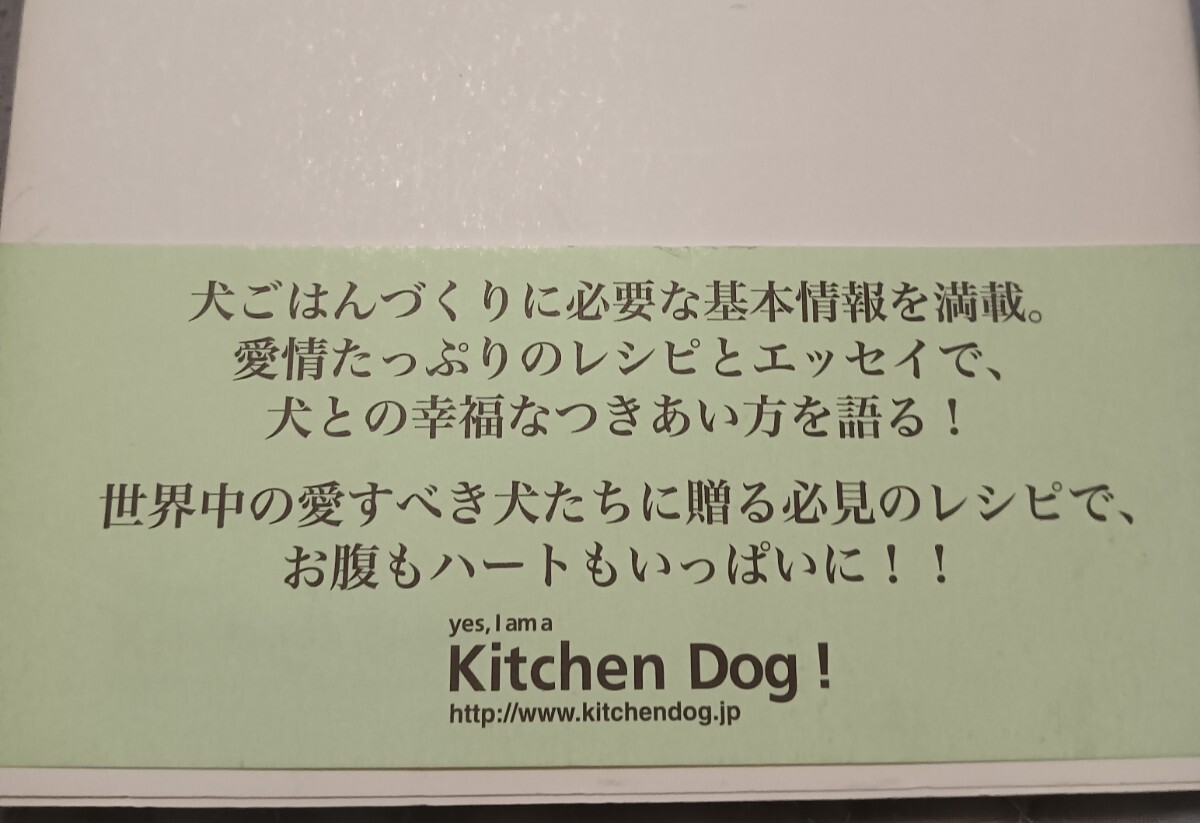 犬ごはんづくりに必要な基本情報を満載。
愛情たっぷりのレシピとエッセイで、
犬との幸福なつきあい方を語る！
世界中の愛すべき犬たちに贈る必見のレシピで、
お腹もハートもいっぱいに！！
yes, I am a
Kitchen Dog !
http://www.kitchendog.jp